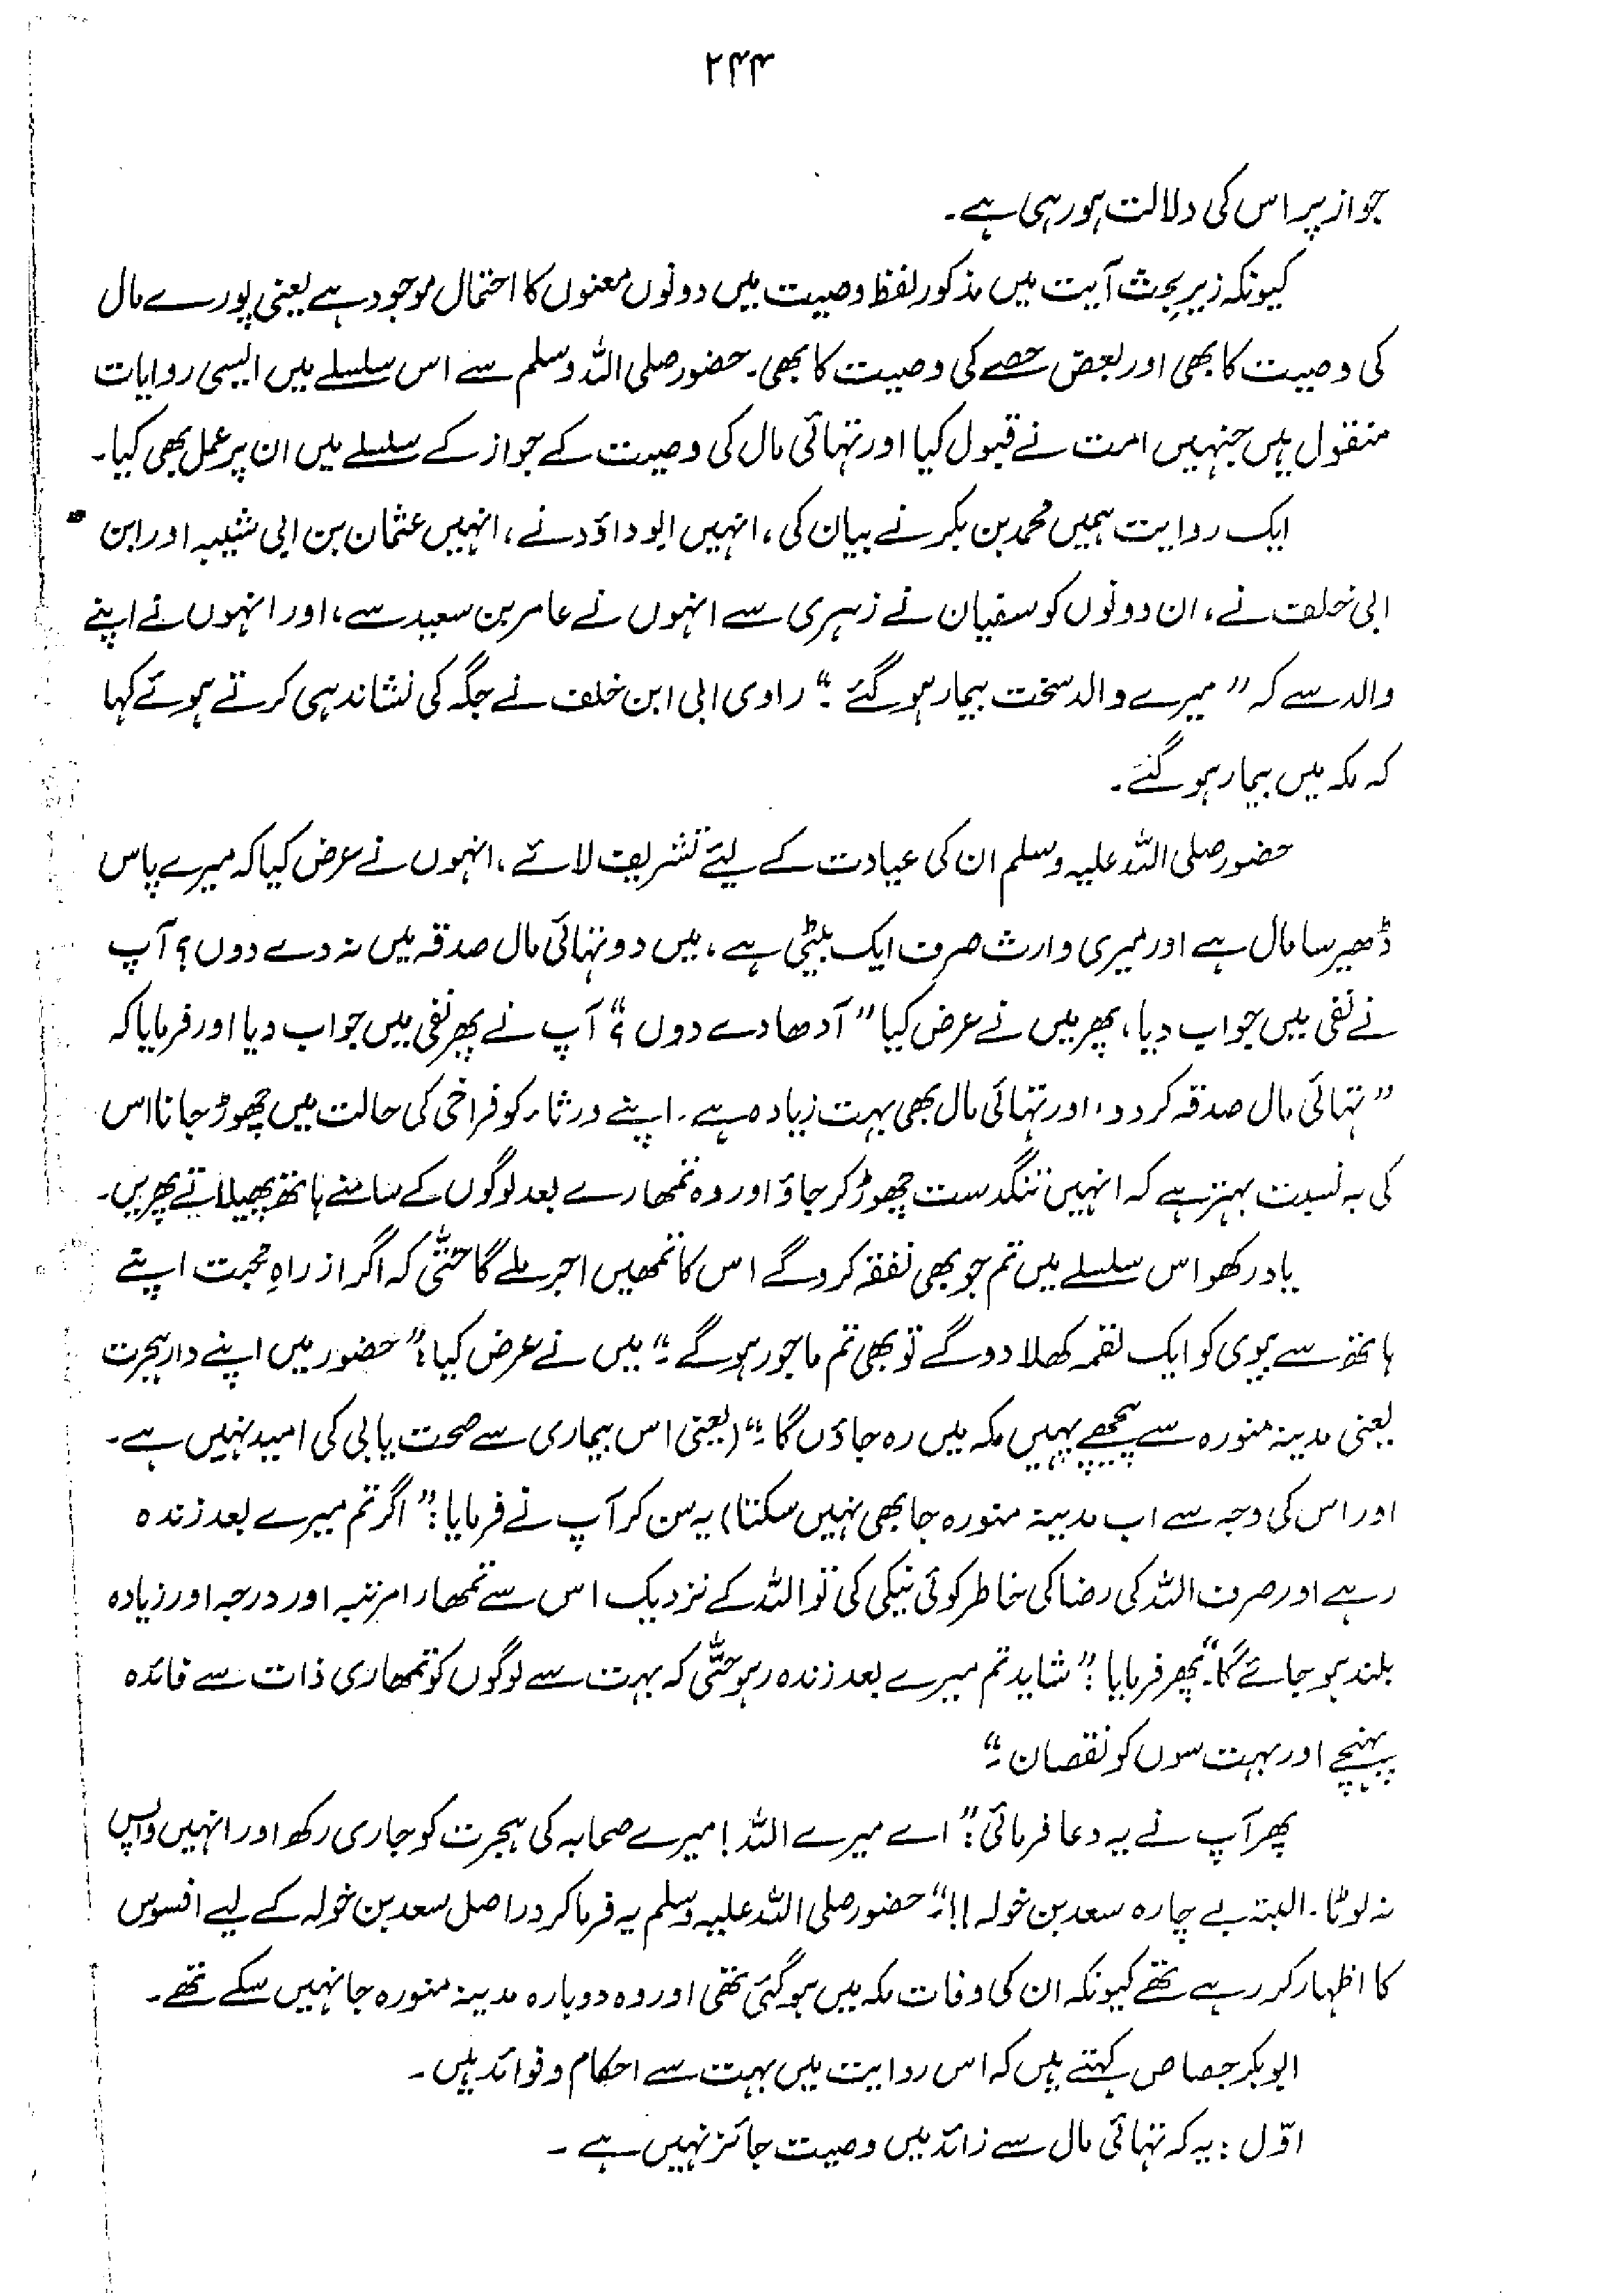 ۲۴۴
جواز پر اس کی دلالت ہو رہی ہے۔
کیونکہ زیرِ بحث آیت میں مذکور لفظ وصیت میں دونوں معنوں کا احتمال موجود ہے یعنی پورے مال
کی وصیت کا بھی اور بعض حصے کی وصیت کا بھی۔ حضور صلی اللہ وسلم سے اس سلسلے میں ایسی روایات
منقول ہیں جنہیں امت نے قبول کیا اور تہائی مال کی وصیت کے جواز کے سلسلے میں ان پر عمل بھی کیا۔
ایک روایت ہمیں محمد بن بکر نے بیان کی، انہیں ابو داؤد نے، انہیں عثمان بن ابی شیبہ اور ابن
ابی خلف نے، ان دونوں کو سفیان نے زہری سے انہوں نے عامر بن سعید سے، اور انہوں نے اپنے
والد سے کہ ”میرے والد سخت بیمار ہو گئے۔“ راوی ابی ابن خلف نے جگہ کی نشاندہی کرتے ہوئے کہا
کہ مکہ میں بیمار ہو گئے۔
حضور صلی اللہ علیہ وسلم ان کی عیادت کے لیئے تشریف لائے، انہوں نے عرض کیا کہ میرے پاس
ڈھیر سا مال ہے اور میری وارث صرف ایک بیٹی ہے، میں دو تہائی مال صدقہ میں نہ دے دوں؟ آپ
نے نفی میں جواب دیا، پھر میں نے عرض کیا ”آدھا دے دوں؟“ آپ نے پھر نفی میں جواب دیا اور فرمایا کہ
”تہائی مال صدقہ کر دو، اور تہائی مال بھی بہت زیادہ ہے۔ اپنے ورثاء کو فراخی کی حالت میں چھوڑ جانا اس
کی بہ نسبت بہتر ہے کہ انہیں تنگدست چھوڑ کر جاؤ اور وہ تمھارے بعد لوگوں کے سامنے ہاتھ پھیلاتے پھریں۔
یاد رکھو اس سلسلے میں تم جو بھی نفقہ کرو گے اس کا تمھیں اجر ملے گا حتّٰی کہ اگر از راہِ محبت اپنے
ہاتھ سے بیوی کو ایک لقمہ کھلا دو گے تو بھی تم ماجور ہو گے۔“ میں نے عرض کیا: ”حضور میں اپنے دار ہجرت
یعنی مدینہ منورہ سے پیچھے یہیں مکہ میں رہ جاؤں گا۔“ (یعنی اس بیماری سے صحت یابی کی امید نہیں ہے۔
اور اس کی وجہ سے اب مدینہ منورہ جا بھی نہیں سکتا) یہ سن کر آپ نے فرمایا: ”اگر تم میرے بعد زندہ
رہے اور صرف اللہ کی رضا کی خاطر کوئی نیکی کی تو اللہ کے نزدیک اس سے تمھارا مرتبہ اور درجہ اور زیادہ
بلند ہو جائے گا۔“ پھر فرمایا: ”شاید تم میرے بعد زندہ رہو حتّٰی کہ بہت سے لوگوں کو تمھاری ذات سے فائدہ
پہنچے اور بہت سوں کو نقصان۔“
پھر آپ نے یہ دعا فرمائی: ”اے میرے اللہ! میرے صحابہ کی ہجرت کو جاری رکھ اور انہیں واپس
نہ لوٹا۔ البتہ بے چارہ سعد بن خولہ!!“ حضور صلی اللہ علیہ وسلم یہ فرما کر دراصل سعد بن خولہ کے لیے افسوس
کا اظہار کر رہے تھے کیونکہ ان کی وفات مکہ میں ہو گئی تھی اور وہ دوبارہ مدینہ منورہ جا نہیں سکے تھے۔
ابو بکر جصاص کہتے ہیں کہ اس روایت میں بہت سے احکام و فوائد ہیں۔
اوّل: یہ کہ تہائی مال سے زائد میں وصیت جائز نہیں ہے۔